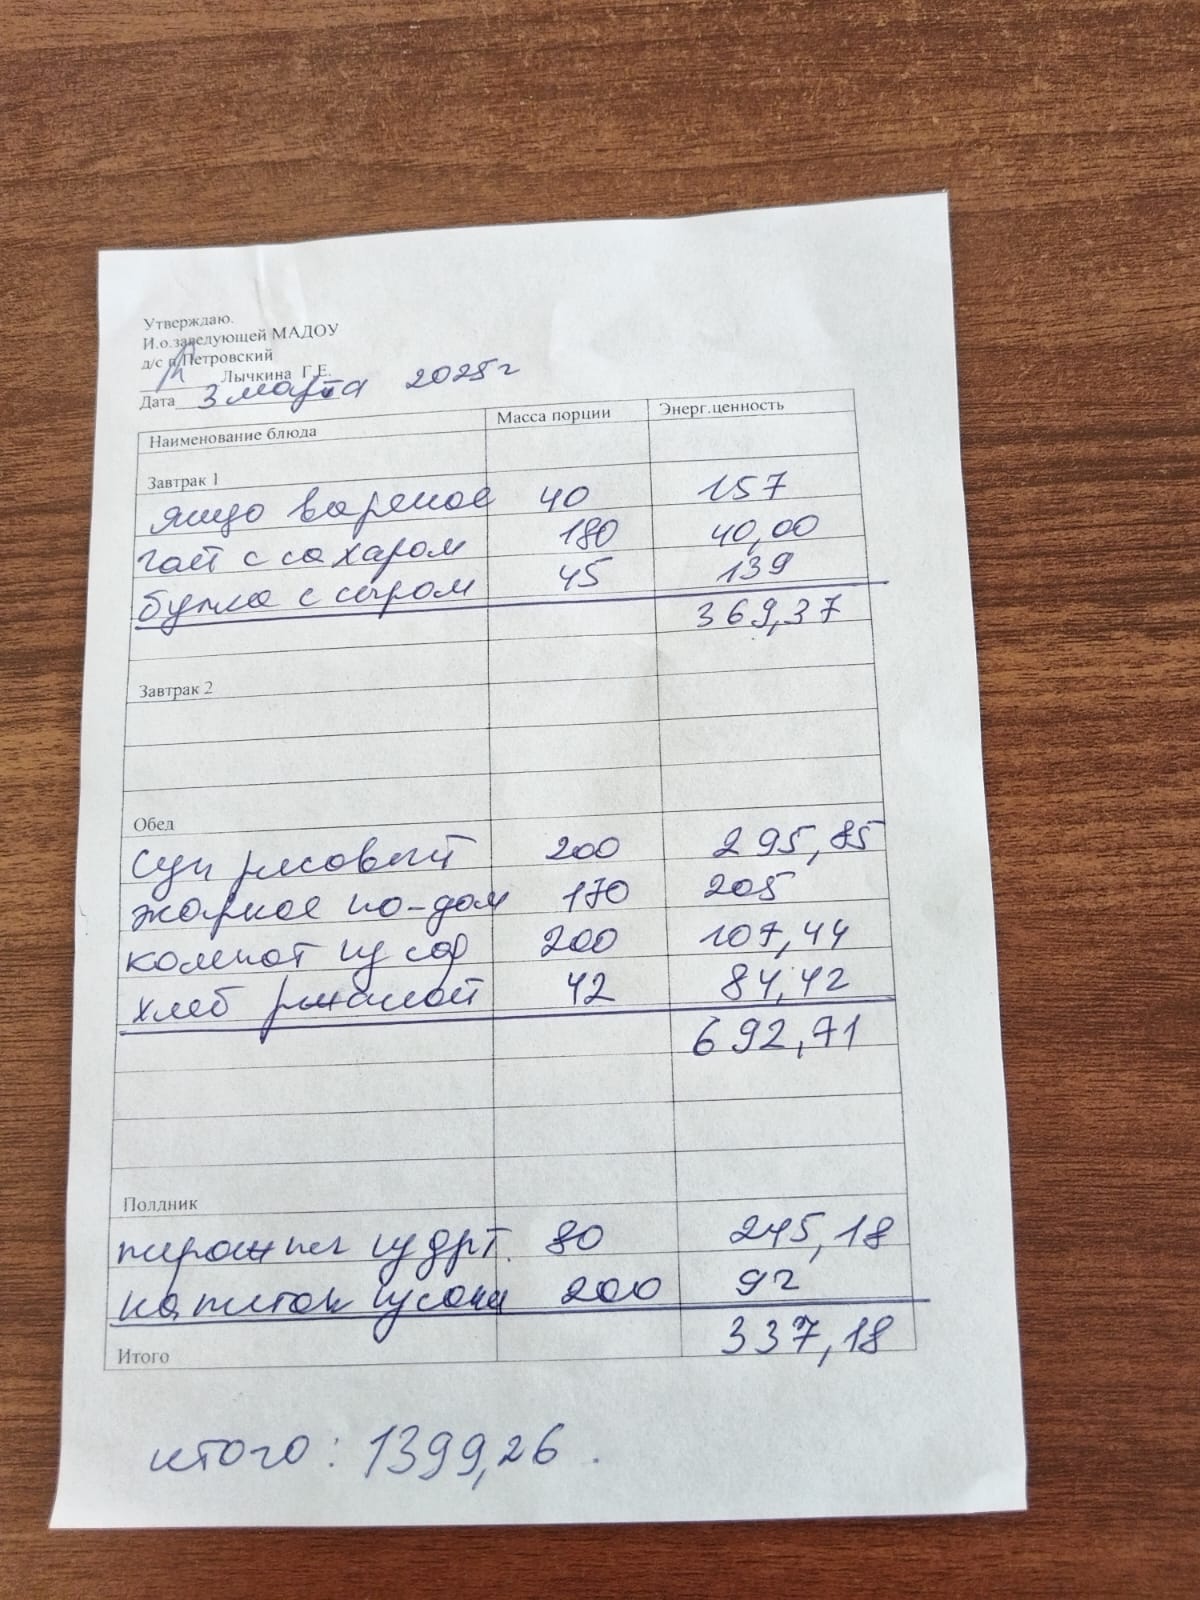 Утверждаю.
И.о.заведующей МАДОУ
д/с п.Петровский
Лычкина Г.Е.
Дата 3 марта 2025г
Наименование блюда Масса порции Энерг.ценность
Завтрак 1
яйцо вареное 40 157
чай с сахаром 180 40,00
булка с сыром 45 139
369,37
Завтрак 2
Обед
суп рисовый 200 295,85
жаркое по-дом 170 205
компот из сф 200 107,44
хлеб ржаной 42 84,42
692,71
Полдник
пирожки из дрт. 80 245,18
напиток из сока 200 92
337,18
Итого
итого: 1399,26.